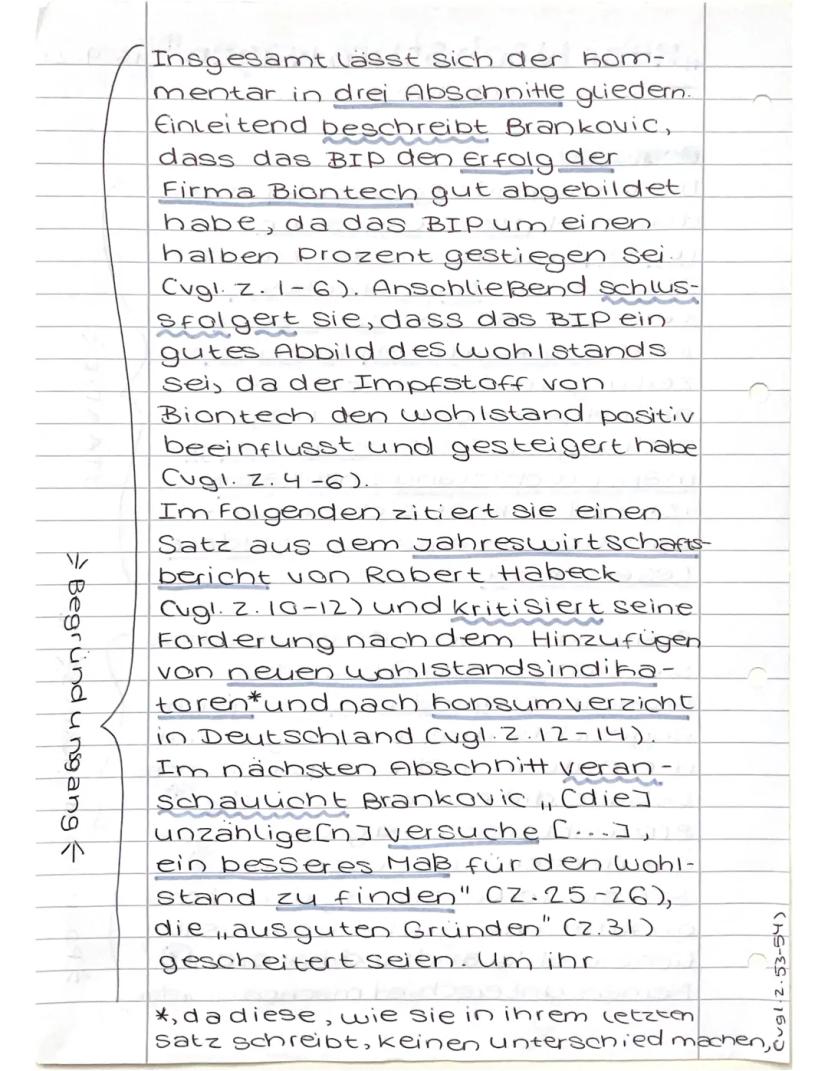 Insgesamt lässt sich der Kom-
mentar in drei Abschnitte gliedern.
Einleitend beschreibt Brankovic,
dass das BIP den Erfolg der
Firma Biontech gut abgebildet
habe, da das BIP um einen
halben Prozent gestiegen sei
(vgl. Z. 1-6). Anschließend schlus-
sfolgert sie, dass das BIP ein
gutes Abbild des Wohlstands
sei, da der Impfstoff von
Biontech den Wohlstand positiv
beeinflusst und gesteigert habe
(vgl. Z. 4-6).
Im Folgenden zitiert sie einen
Satz aus dem Jahreswirtschafts-
bericht von Robert Habeck
(vgl. Z. 10-12) und kritisiert seine
Forderung nach dem Hinzufügen
von neuen Wohlstandsindika-
toren* und nach Konsumverzicht
in Deutschland (vgl. Z. 12-14).
Im nächsten Abschnitt veran-
schaulicht Brankovic „[die]
unzählige[n] Versuche [...],
ein besseres Maß für den Wohl-
stand zu finden" (Z. 25-26),
die „aus guten Gründen" (Z. 31)
gescheitert seien. Um ihr
*, da diese, wie sie in ihrem letzten
Satz schreibt, keinen Unterschied machen,
(vgl. Z. 53-54)
→ Begründungsgang ←